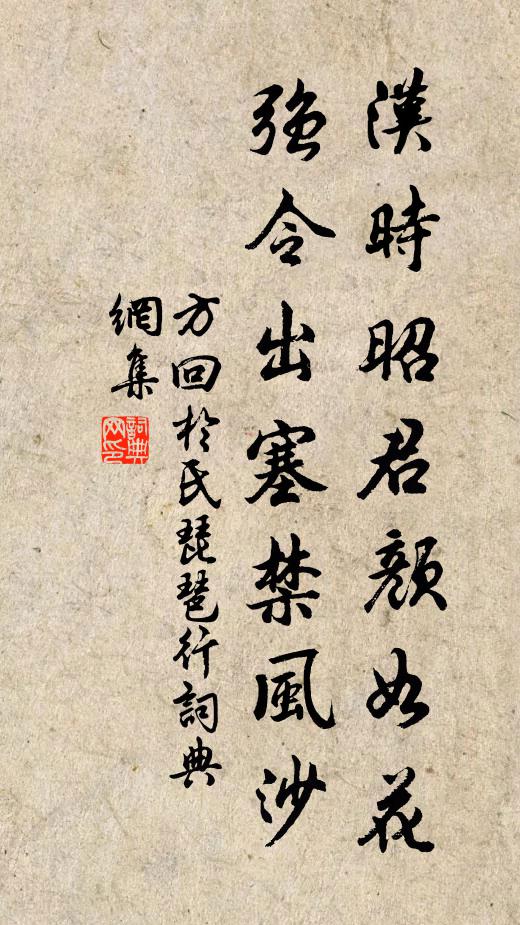 漢時昭君顏如花
強令出塞禁風沙
方回於氏琵琶行詞典
網集
詞典
网印